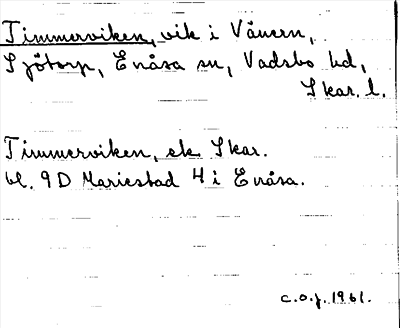 Timmerviken, vik i Vänern,
Sjötorp, Enåsa sn, Vadsbo hd,
Skar. l.
Timmerviken, ek Skar.
bl. 9D Mariestad 4 i Enåsa.
c.o.j. 1961.